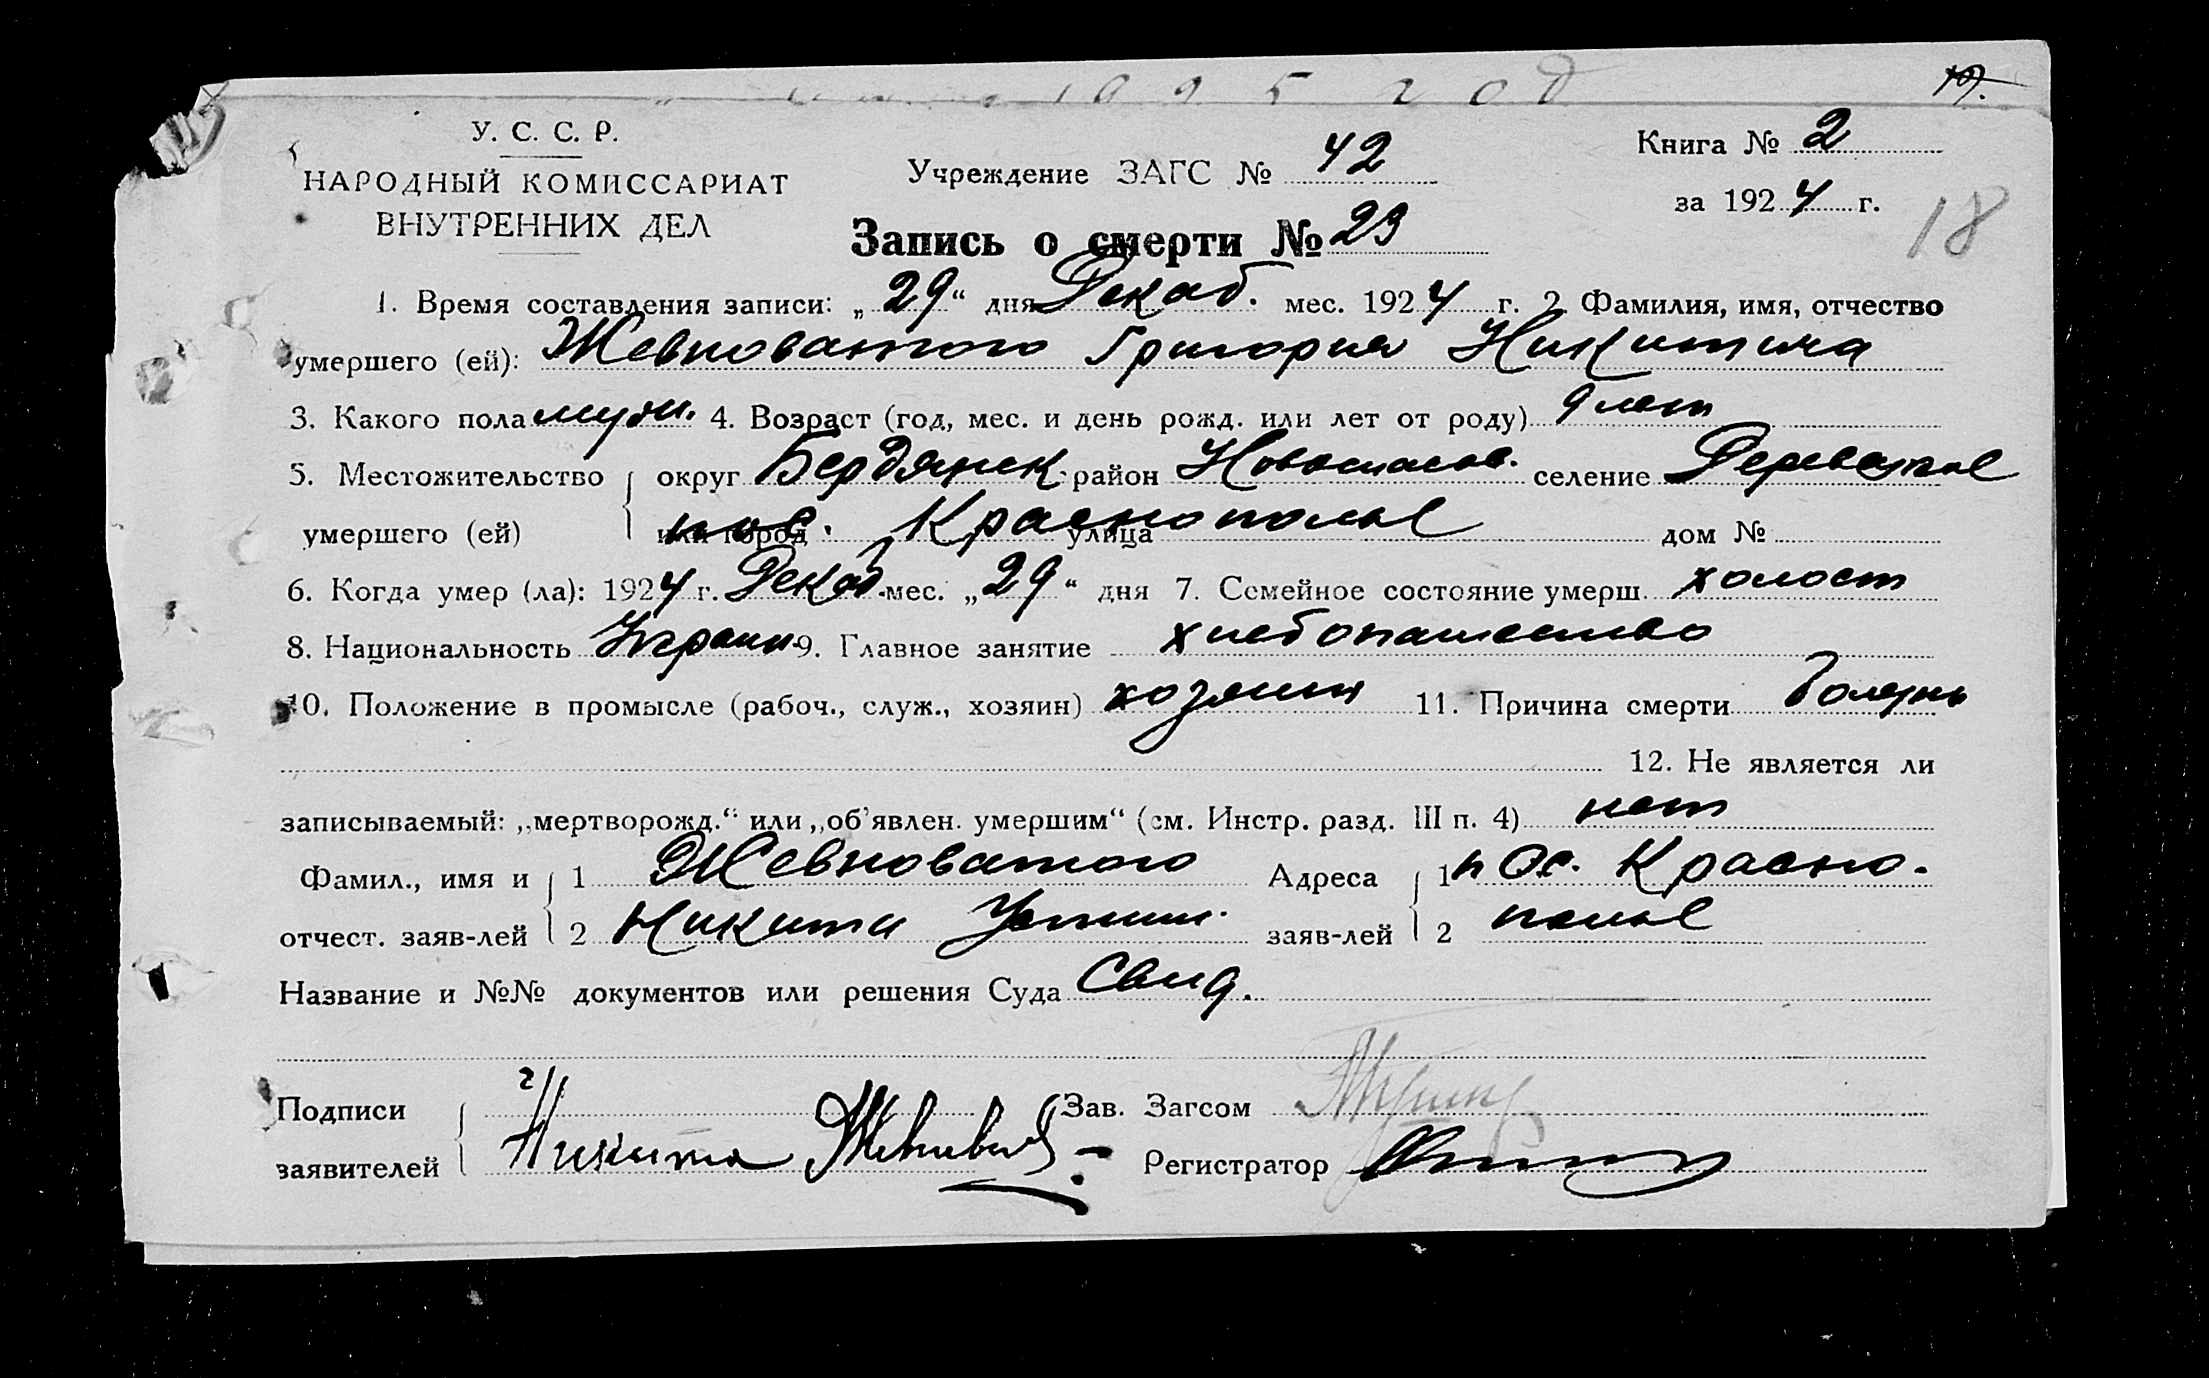 1925 год
19.
У. С. С. Р.
НАРОДНЫЙ КОМИССАРИАТ
ВНУТРЕННИХ ДЕЛ
Учреждение ЗАГС № 42
Книга № 2
за 1924 г.
18
Запись о смерти № 23
1. Время составления записи: „29“ дня Декаб. мес. 1924 г. 2 Фамилия, имя, отчество
умершего (ей): Жевноватого Григория Никитича
3. Какого пола муж. 4. Возраст (год, мес. и день рожд. или лет от роду) 9 лет
5. Местожительство округ Бердянск район Новоспасов. селение
умершего (ей) или город пос. Краснополье улица дом №
6. Когда умер (ла): 1924 г. Декаб. мес. „29“ дня 7. Семейное состояние умерш. холост
8. Национальность Украин. 9. Главное занятие хлебопашество
10. Положение в промысле (рабоч., служ., хозяин) хозяин 11. Причина смерти болезнь
12. Не является ли
записываемый: „мертворожд.“ или „об'явлен. умершим“ (см. Инстр. разд. III п. 4) нет
Фамил., имя и 1 Жевноватого Адреса 1 пос. Красно-
отчест. заяв-лей 2 Никита Устин. заяв-лей 2 полье
Название и №№ документов или решения Суда Свид.
Подписи Зав. Загсом
заявителей Никита Регистратор